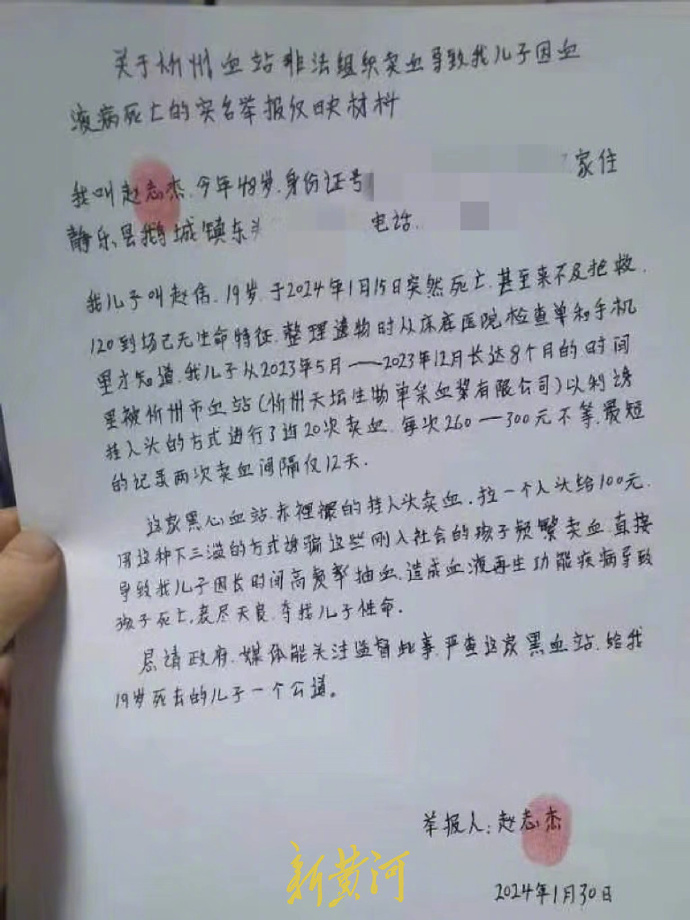 关于忻州血站非法组织卖血导致我儿子因血
液病死亡的实名举报反映材料
我叫赵志杰.今年48岁.身份证号 家住
静乐县鹅城镇东 电话.
我儿子叫赵伟.19岁.于2024年1月15日突然死亡.甚至来不及抢救.
120到场已无生命特征.整理遗物时从床底医院检查单和手机
里才知道.我儿子从2023年5月——2023年12月长达8个月的时间
里被忻州市血站(忻州天坛生物单采血浆有限公司)以利诱
拄人头的方式进行了近20次卖血.每次260—300元不等.最短
的记录两次卖血间隔仅12天.
这家黑心血站.赤裸裸的拄人头卖血.拉一个人头给100元.
用这种下三滥的方式诱骗这些刚入社会的孩子频繁卖血.直接
导致我儿子因长时间高频率抽血.造成血液再生功能疾病导致
孩子死亡.丧尽天良.夺我儿子性命.
恳请政府.媒体能关注监督此事.严查这家黑血站.给我
19岁死去的儿子一个公道。
举报人:赵志杰
2024年1月30日
新黄河